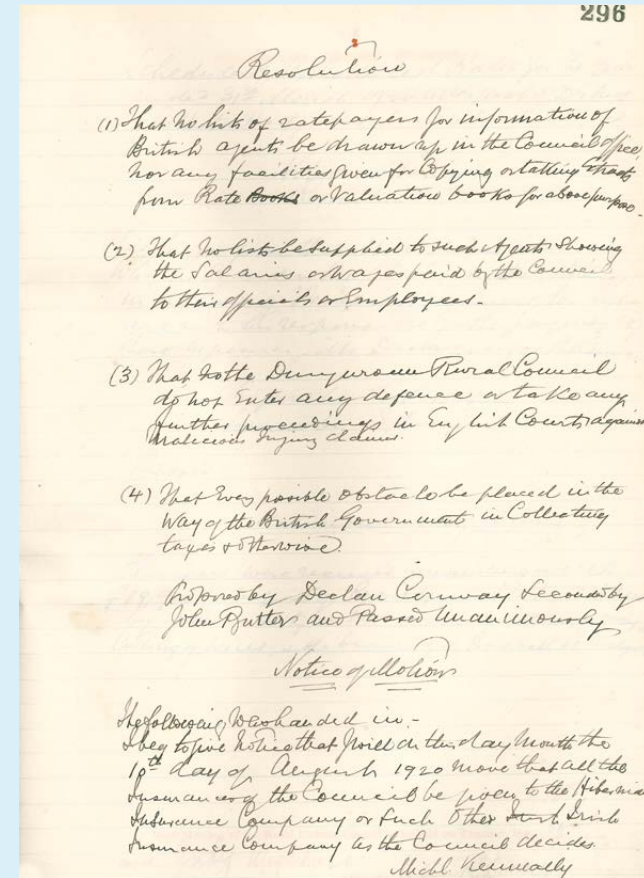 296
Resolution
(1) That no lists of ratepayers for information of
British agents be drawn up in the Council office
nor any facilities given for Copying or taking
from Rate Books or Valuation books for above purpose.
(2) That no lists be supplied to such Agents showing
the Salaries or Wages paid by the Council
to their officials or Employees.
(3) That the Dungarvan Rural Council
do not Enter any defence or take any
further proceedings in English Courts against
malicious injury claims.
(4) That Every possible obstacle be placed in the
Way of the British Government in Collecting
taxes & otherwise.
Proposed by Declan Conway Seconded by
John and Passed Unanimously
Notice of Motion
The following was handed in:-
I beg to give notice that I will on this day month the
10th day of August 1920 move that all the
Insurances of the Council be given to the Hibernian
Insurance Company or such other Irish Irish
Insurance Company as the Council decides.
Michl Kenneally